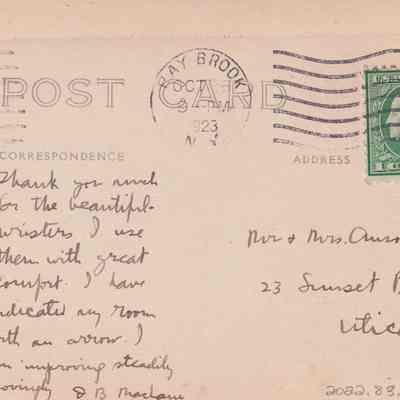 POST CARD
RAY BROOK
OCT
3 PM
1923
N.Y.
CORRESPONDENCE
ADDRESS
Thank you much
for the beautiful
wristers I use
them with great
comfort. I have
indicated my room
with an arrow. I
am improving steadily
Lovingly
Mr & Mrs.
23 Sunset
Utica
2022.89.